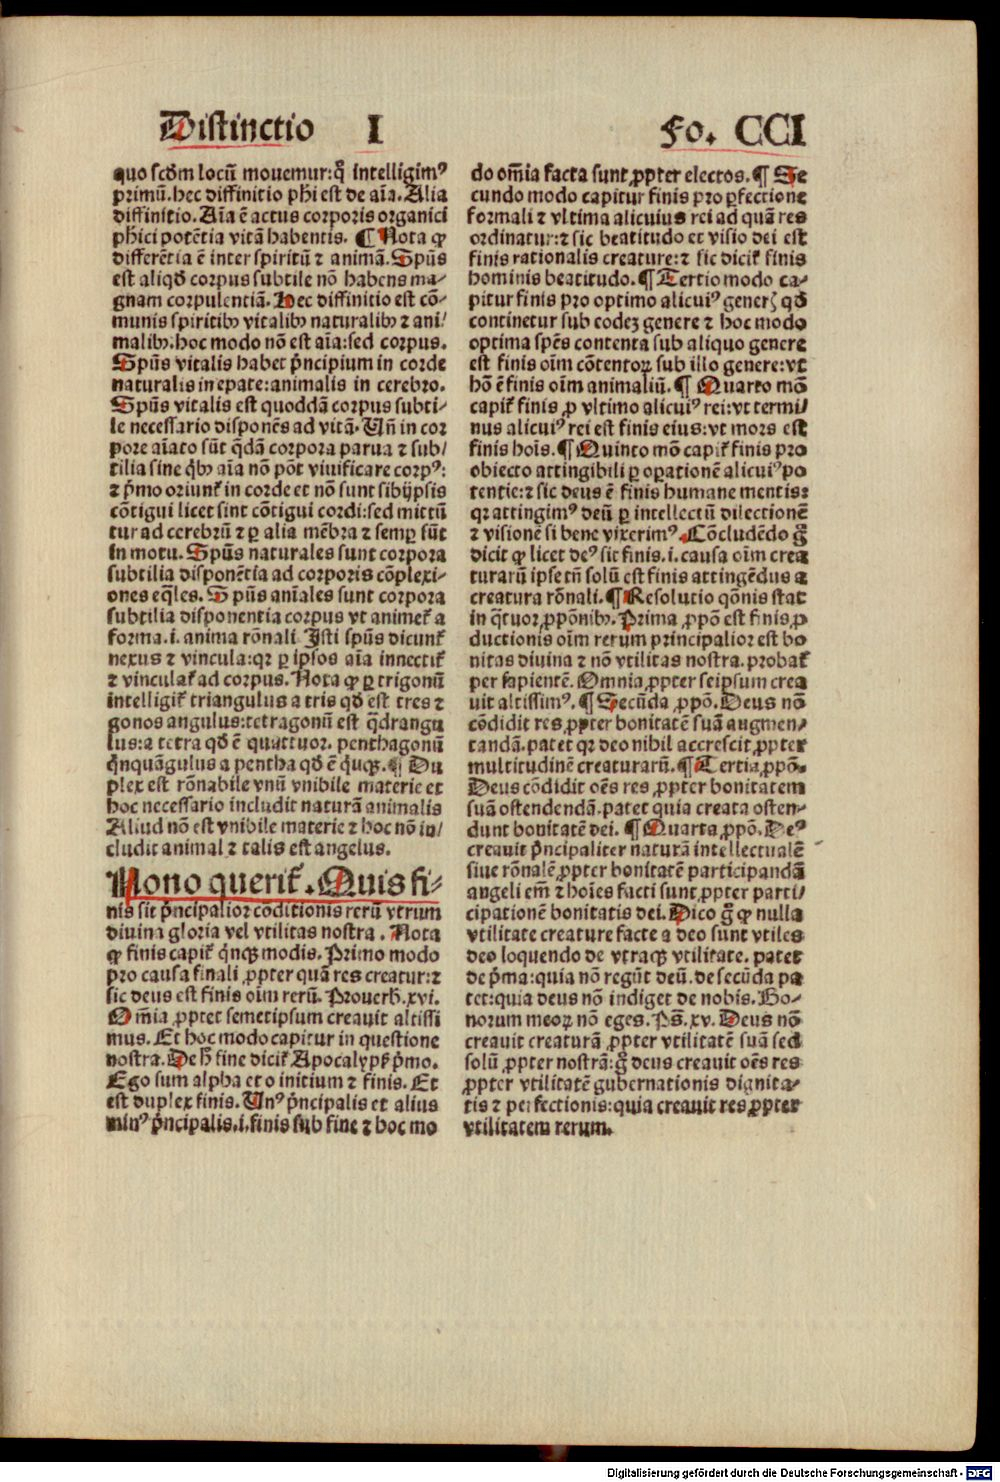 Distinctio I Fo. CCI
quo scḋm locū mouemur: q̄ intelligimꝰ
primū. hec diffinitio phi est de aīa. Alia
diffinitio. Aīa ē actus corporis organici
phici potētia vitā habentis. ¶ Nota ꝙ
differētia ē inter spiritū ⁊ animā. Spūs
est aliqd̄ corpus subtile nō habens ma-
gnam corpulentiā. Hec diffinitio est cō-
munis spiritibꝫ vitalibꝫ naturalibꝫ ⁊ ani/
malibꝫ. hoc modo nō est aīa: sed corpus.
Spūs vitalis habet pͥncipium in corde
naturalis in epate: animalis in cerebro.
Spūs vitalis est quoddā corpus subti-
le necessario disponēs ad vitā. Uñ in cor
pore aīato sūt q̄dā corpora parua ⁊ sub/
tilia sine qͥbꝫ aīa nō pōt viuificare corpꝰ:
⁊ pͥmo oriunt᷑ in corde et nō sunt sibijpsis
cōtigui licet sint cōtigui cordi: sed mittū
tur ad cerebrū ⁊ ꝑ alia mēbra ⁊ semꝑ sūt
in motu. Spūs naturales sunt corpora
subtilia disponētia ad corporis cōplexi-
ones eq̄les. Spūs aīales sunt corpora
subtilia disponentia corpus vt animet᷑ a
forma .i. anima rōnali Isti spūs dicunt᷑
nexus ⁊ vincula: qꝛ ꝑ ipsos aīa innectit᷑
⁊ vinculat᷑ ad corpus. Nota ꝙ ꝑ trigonū
intelligit᷑ triangulus a tris qd̄ est tres ⁊
gonos angulus: tetragonū est q̄drangu
lus: a tetra qd̄ ē quattuor. penthagonū
qͥnquāgulus a pentha qd̄ ē qͥnqꝫ. ¶ Du
plex est rōnabile vnū vnibile materie et
hoc necessario includit naturā animalis
Aliud nō est vnibile materie ⁊ hoc nō in/
cludit animal ⁊ talis est angelus.
Nono querit᷑. Quis fi-
nis sit pͥncipalior cōditionis rerū vtrum
diuina gloria vel vtilitas nostra. Nota
ꝙ finis capit᷑ qͥnqꝫ modis. Primo modo
pro causa finali ꝓpter quā res creatur: ⁊
sic deus est finis oīm rerū. Prouerb̄. xvi.
Om̄ia ꝓptet semetipsum creauit altissi
mus. Et hoc modo capitur in questione
nostra. De h̄ fine dicit᷑ Apocalyp̄. pͥmo.
Ego sum alpha et o initium ⁊ finis. Et
est duplex finis. Unꝰ pͥncipalis et alius
minꝰ pͥncipalis .i. finis sub fine ⁊ hoc mo
do om̄ia facta sunt ꝓpter electos. ¶ Se
cundo modo capitur finis pro ꝑfectione
formali ⁊ vltima alicuius rei ad quā res
ordinatur: ⁊ sic beatitudo et visio dei est
finis rationalis creature: ⁊ sic dicit᷑ finis
hominis beatitudo. ¶ Tertio modo ca-
pitur finis pro optimo alicuiꝰ generꝭ qd̄
continetur sub eodeꝫ genere ⁊ hoc modo
optima spēs contenta sub aliquo genere
est finis oīm cōtentoꝝ sub illo genere: vt
hō ē finis oīm animaliū. ¶ Quarto mō
capit᷑ finis ꝓ vltimo alicuiꝰ rei: vt termi/
nus alicuiꝰ rei est finis eius: vt mors est
finis hoīs. ¶ Quinto mō capit᷑ finis pro
obiecto attingibili ꝑ oꝑationē alicuiꝰ po
tentie: ⁊ sic deus ē finis humane mentis:
qꝛ attingimꝰ deū ꝑ intellectū dilectionē
⁊ visionē si bene vixerimꝰ. Cōcludēdo g̊
dicit ꝙ licet deꝰ sit finis .i. causa oīm crea
turarū ipse tn̄ solū est finis attingēdus a
creatura rōnali. ¶ Resolutio qōnis stat
in q̄tuor ꝓpōnibꝫ. Prima ꝓpō est finis ꝓ
ductionis oīm rerum principalior est bo
nitas diuina ⁊ nō vtilitas nostra. probat᷑
per sapientē. Omnia ꝓpter seipsum crea
uit altissimꝰ. ¶ Secūda ꝓpō. Deus nō
cōdidit res ꝓpter bonitatē suā augmen/
tandā. patet qꝛ deo nihil accrescit ꝓpter
multitudinē creaturarū. ¶ Tertia ꝓpō.
Deus cōdidit oēs res ꝓpter bonitatem
suā ostendendā. patet quia creata osten-
dunt bonitatē dei. ¶ Quarta ꝓpō. Deꝰ
creauit pͥncipaliter naturā intellectualē
siue rōnalē ꝓpter bonitatē participandā
angeli em̄ ⁊ hoīes facti sunt ꝓpter parti/
cipationē bonitatis dei. Dico g̊ ꝙ nulla
vtilitate creature facte a deo sunt vtiles
deo loquendo de vtraqꝫ vtilitate. patet
de pͥma: quia nō regūt deū. de secūda pa
tet: quia deus nō indiget de nobis. Bo-
norum meoꝝ nō eges. Ps̄. xv. Deus nō
creauit creaturā ꝓpter vtilitatē suā sed
solū ꝓpter nostrā: g̊ deus creauit oēs res
ꝓpter vtilitatē gubernationis dignita-
tis ⁊ perfectionis: quia creauit res ꝓpter
vtilitatem rerum.
Digitalisierung gefördert durch die Deutsche Forschungsgemeinschaft - DFG